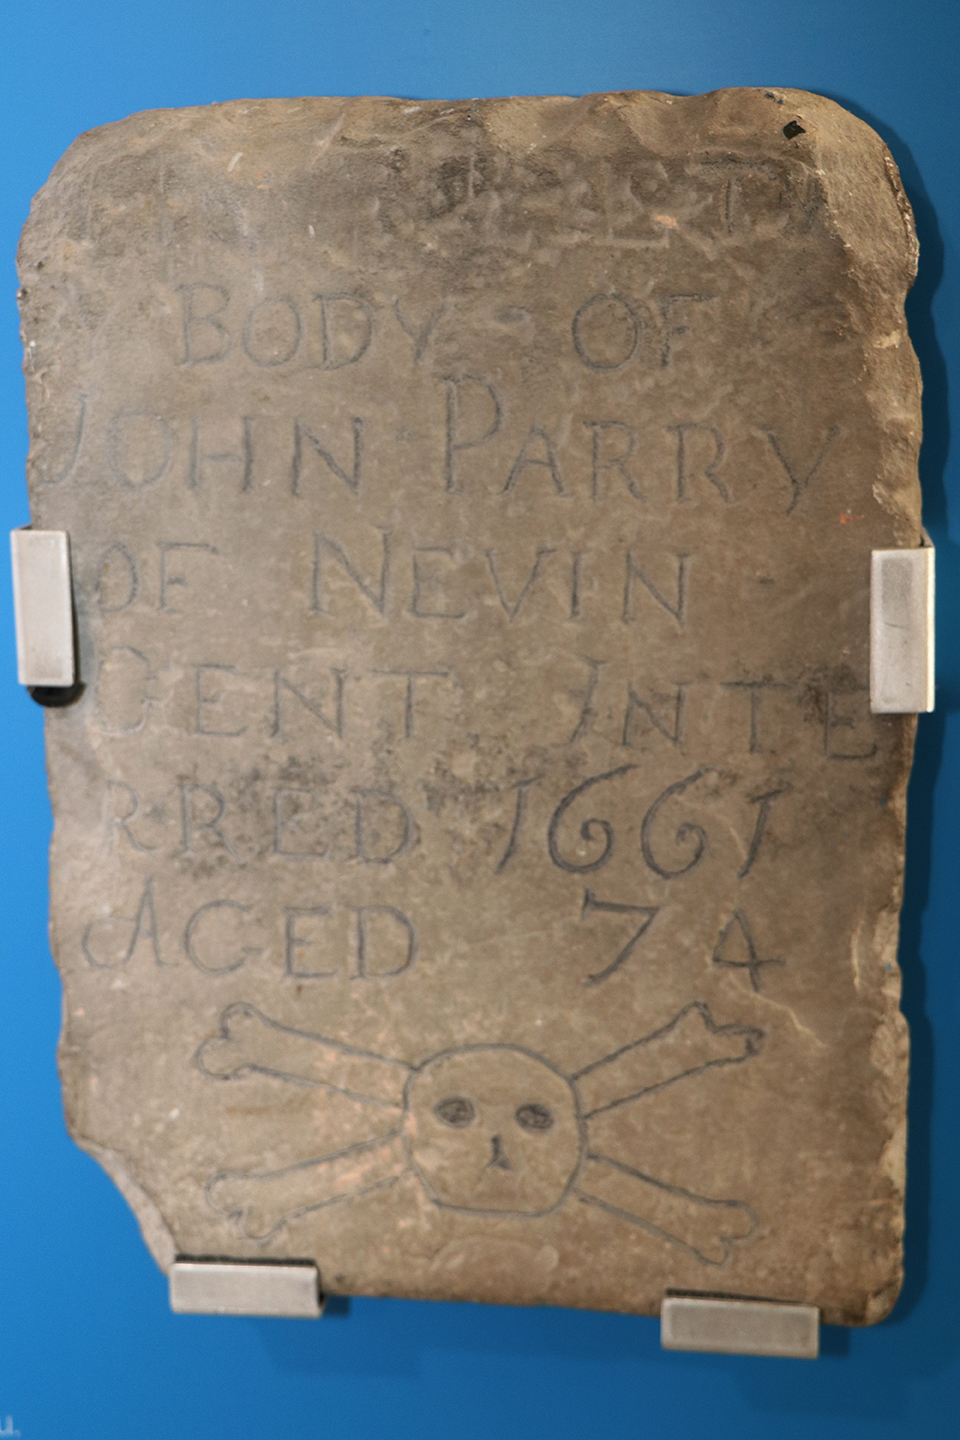 BODY OF
JOHN PARRY
OF NEVIN
GENT INTE
RRED 1661
AGED 74